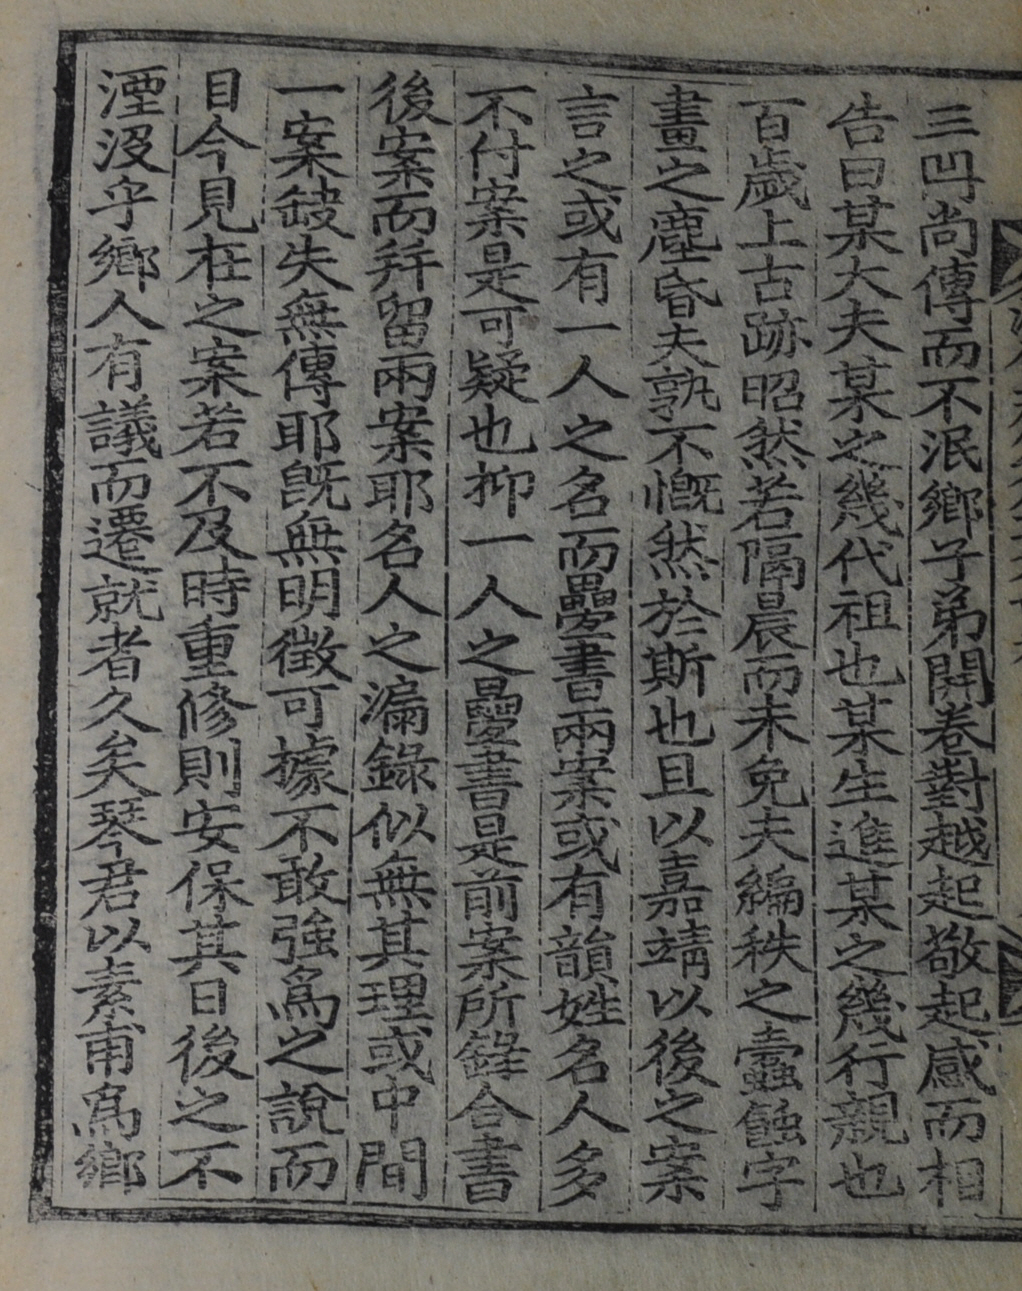 三冊尚傳而不泯鄉子弟開卷對越起敬起感而相
告曰某大夫某之幾代祖也某生進某之幾行親也
百歲上古跡昭然若隔晨而未免夫編秩之蠹蝕字
畫之塵昏夫孰不慨然於斯也且以嘉靖以後之案
言之或有一人之名而疊書兩案或有韻姓名人多
不付案是可疑也抑一人之疊書是前案所錄合書
後案而幷留兩案耶名人之漏錄似無其理或中間
一案䤃失無傳耶旣無明徵可據不敢強爲之說而
目今見在之案若不及時重修則安保其日後之不
湮沒乎鄉人有議而遷就者久矣琴君以素甫爲鄉